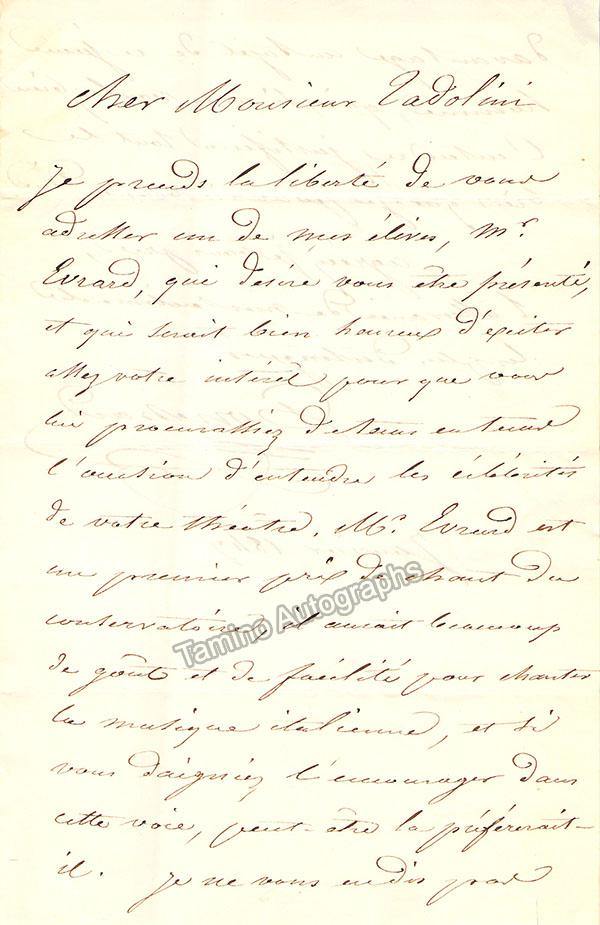 cher Monsieur Tadolini
Je prends la liberté de vous
adresser un de mes élèves, Mr.
Evrard, qui desire vous être présenté,
et qui serait bien heureux d'exciter
assez votre intérêt pour que vous
lui procurassiez de tems en tems
l'occasion d'entendre les célébrités
de votre théatre. Mr. Evrard est
un premier prix de chant du
conservatoire, il aurait beaucoup
de goût et de facilité pour chanter
la musique italienne, et si
vous daigniez l'encourager dans
cette voie, peut-être la préférerait-
il. Je ne vous en dis pas
Tamino Autographs